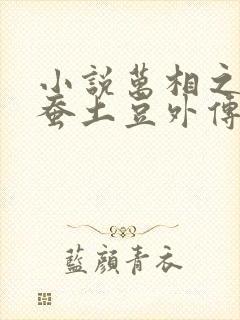 小說萬相之
蚕土豆外傳
藍顏青衣